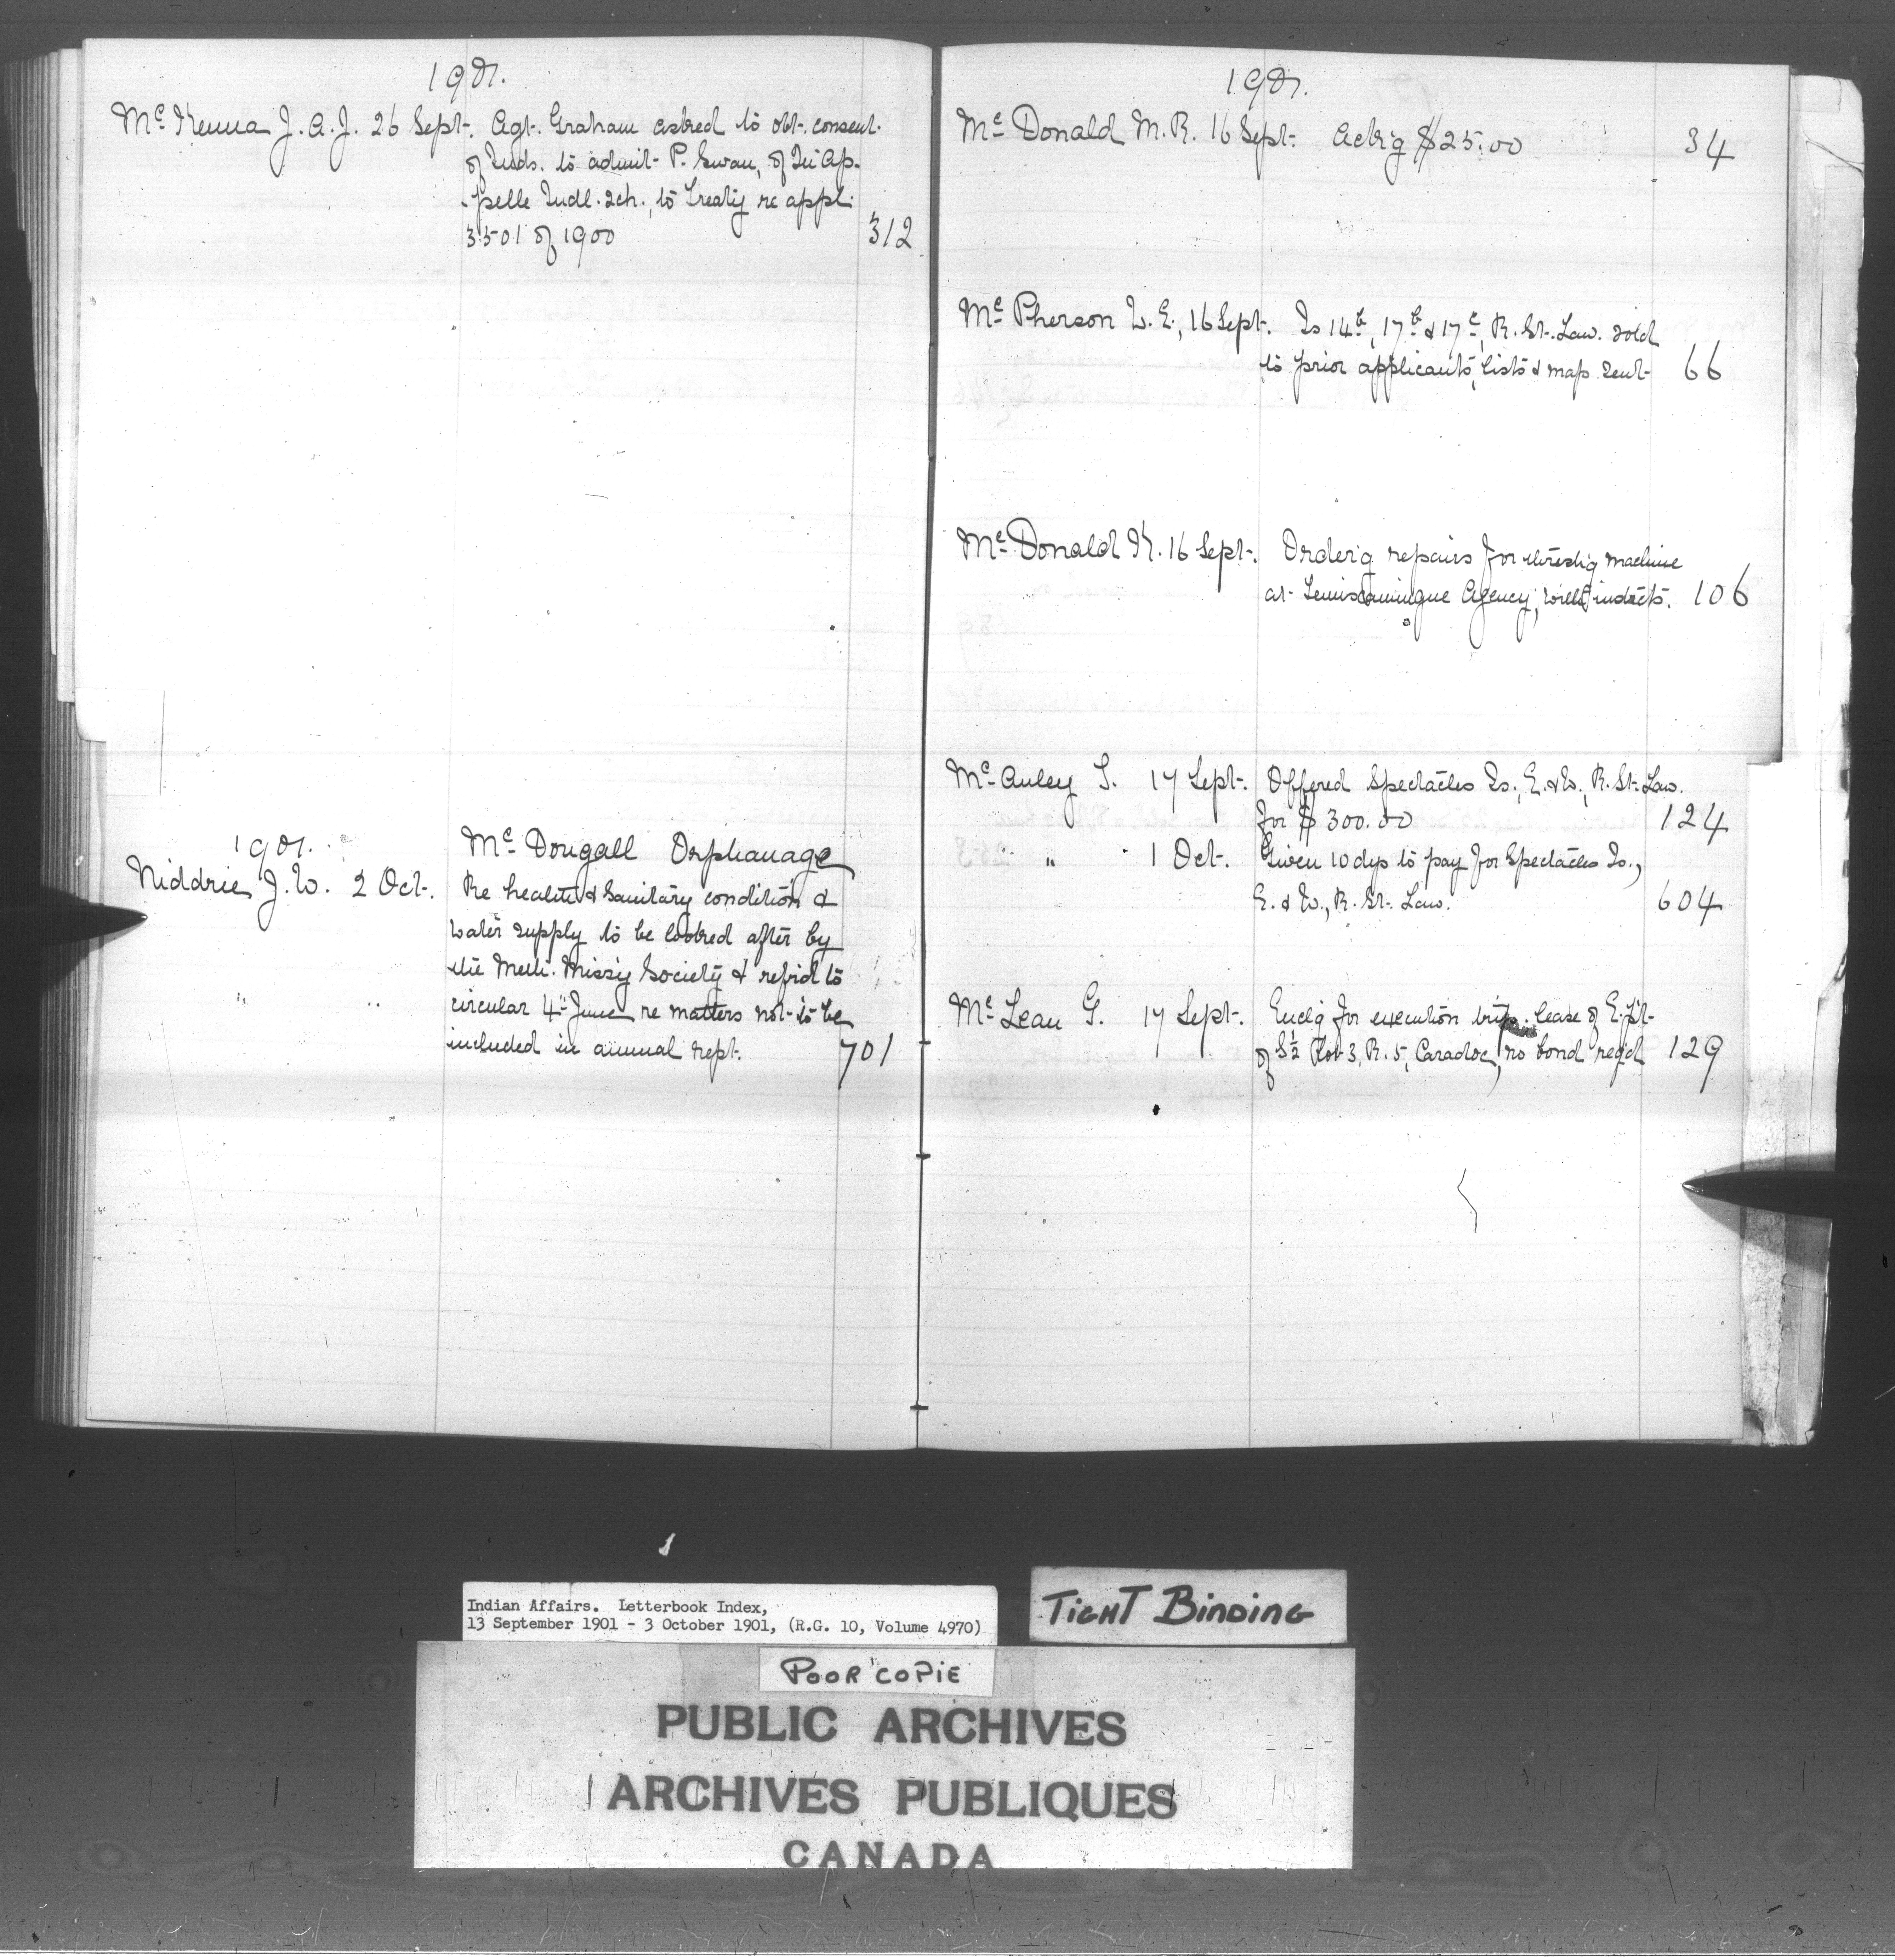 1901.
McKenna J. A. J. 26 Sept. Agt. Graham asked to obt. consent
of Inds. to admit P. Swan, of Qu'Ap-
-pelle Indl. Sch., to Treaty re appl.
3501 of 1900 312
1901.
Niddrie J. W. 2 Oct. McDougall Orphanage
Re health & Sanitary condition &
water supply to be looked after by
the Meth. Miss'y Society & refrd to
" " circular 4th June re matters not to be
included in annual rept. 701
1901.
McDonald M. R. 16 Sept. Ack'g $25.00 34
McPherson L. E., 16 Sept. Is 14b, 17b & 17c, R. St. Law. sold
to prior applicants, lists & map sent 66
McDonald K. 16 Sept. Order'g repairs for thresh'g machine
at Temiscamingue Agency, 106
McAuley T. 17 Sept. Offered Spectacles Is., E. & W., R. St. Law.
for $300.00 124
" 1 Oct. Given 10 dys to pay for Spectacles Is.,
E. & W., R. St. Law. 604
McLean G. 17 Sept. Encl'g for execution trip. lease of E. pt
of S½ lot 3, R. 5, Caradoc, no bond req'd 129
Indian Affairs. Letterbook Index,
13 September 1901 - 3 October 1901, (R.G. 10, Volume 4970)
TIGHT BINDING
POOR COPIE
PUBLIC ARCHIVES
ARCHIVES PUBLIQUES
CANADA